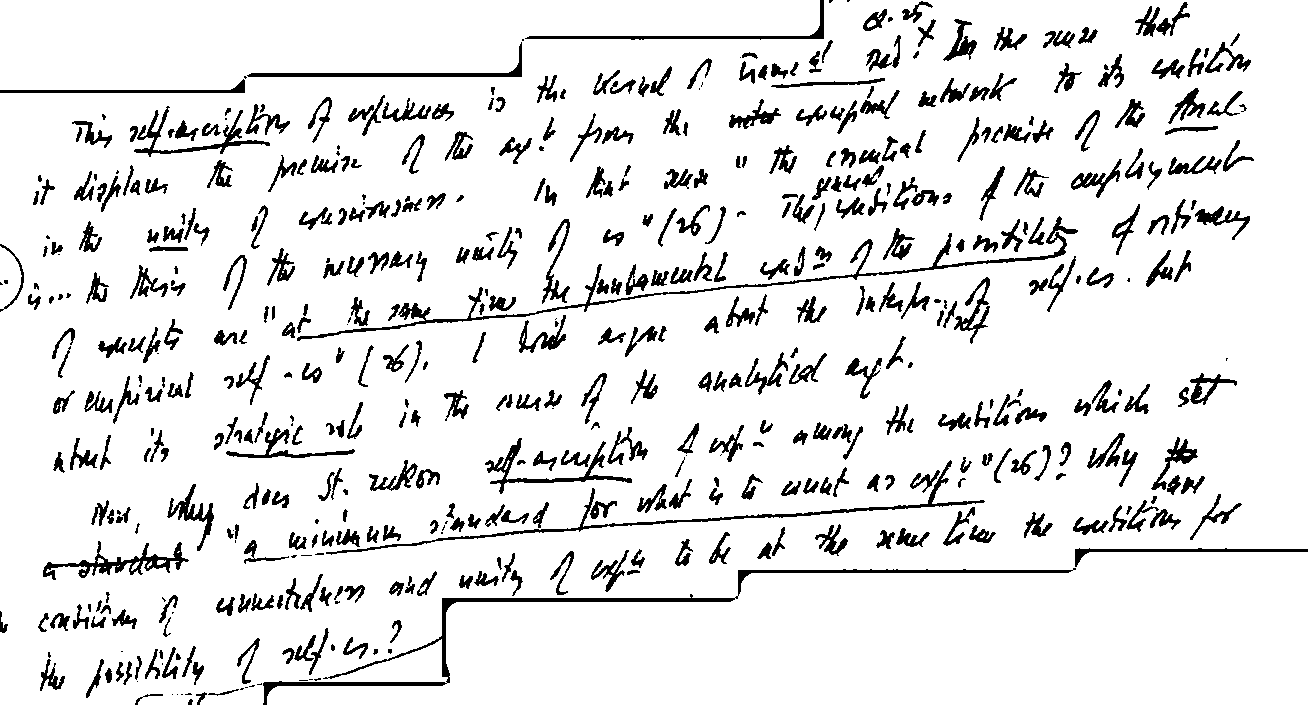 cf. 25
This self-ascription of experiences is the kernel of Transcal Ded.n In the sense that
it displaces the premise of the argt from the conceptual network to its condition
in the unity of consciousness. In that sense "the essential premise of the Anal.
is... the thesis of the necessary unity of cs" (26). The general conditions of the employment
of concepts are "at the same time the fundamental condns of the possibility of ordinary
or empirical self-cs" (26). I don't argue about the interpr. of self-cs. itself but
about its strategic role in the course of the analytical argt.
Now, why does St. reckon self-ascription of expce among the conditions which set
a standard "a minimum standard for what is to count as expce" (26)? Why the have
condition of connectedness and unity of expce to be at the same time the conditions for
the possibility of self-cs.?